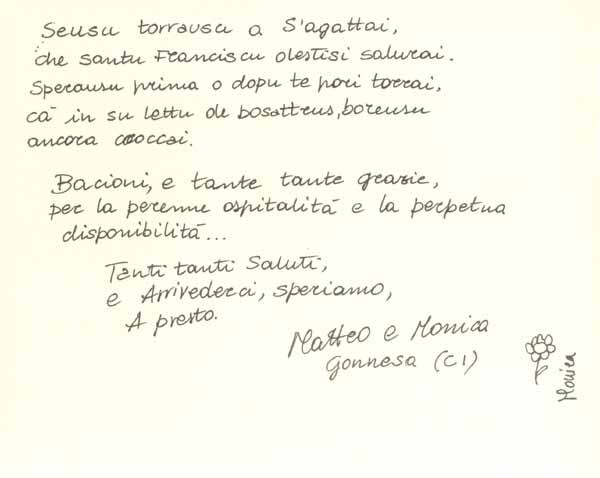 Seusu torrausu a S'agattai,
che santu Franciscu olestisi salurai.
Sperausu prima o dopu te pori torrai,
cà in su lettu de bosattrus, boreusu
ancora croccai.
Bacioni, e tante tante grazie,
per la perenne ospitalità e la perpetua
disponibilità...
Tanti tanti Saluti,
e Arrivederci, speriamo,
A presto.
Matteo e Monica
Gonnesa (CI)
Monica